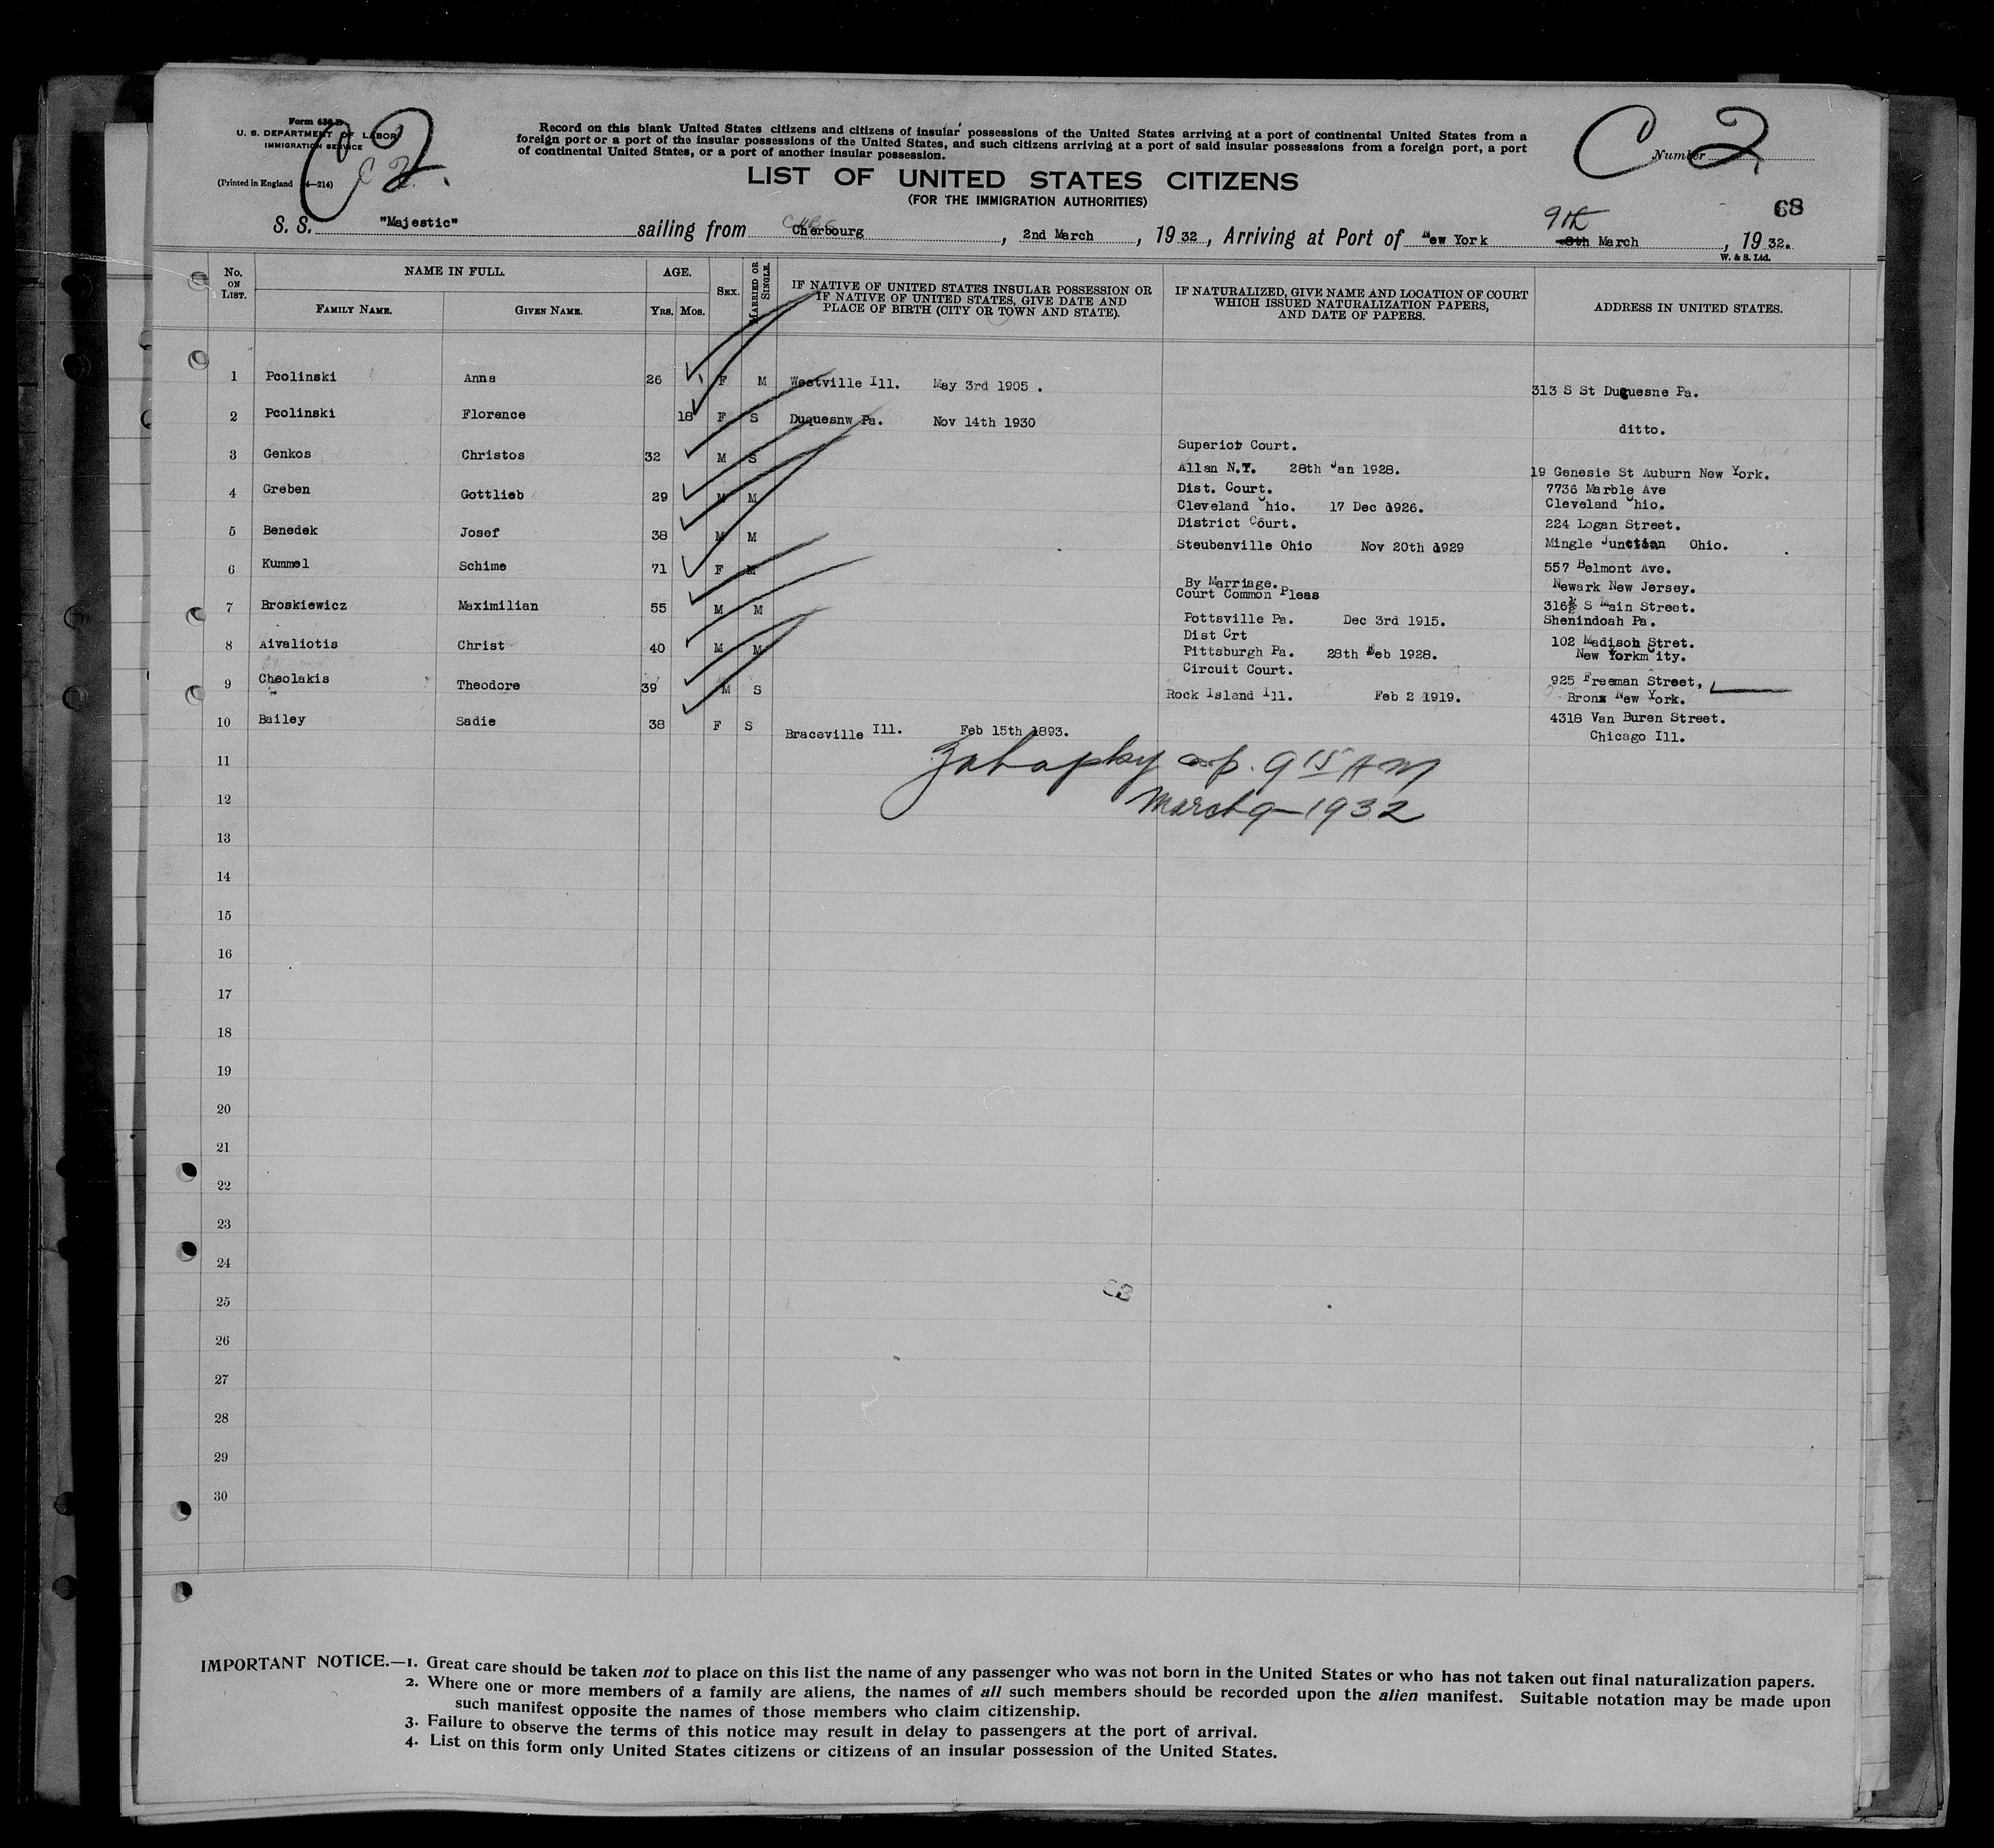 Form 630 B
U. S. DEPARTMENT OF LABOR
IMMIGRATION SERVICE
(Printed in England 4—214)
C 2
C 2.
Record on this blank United States citizens and citizens of insular possessions of the United States arriving at a port of continental United States from a
foreign port or a port of the insular possessions of the United States, and such citizens arriving at a port of said insular possessions from a foreign port, a port
of continental United States, or a port of another insular possession.
C 2
Number
LIST OF UNITED STATES CITIZENS
(FOR THE IMMIGRATION AUTHORITIES)
68
S. S. "Majestic" sailing from Cherbourg, 2nd March, 1932, Arriving at Port of New York 8th 9th March, 1932.
W. & S. Ltd.
No. ON LIST. NAME IN FULL. AGE. SEX. MARRIED OR SINGLE. IF NATIVE OF UNITED STATES INSULAR POSSESSION OR IF NATIVE OF UNITED STATES, GIVE DATE AND PLACE OF BIRTH (CITY OR TOWN AND STATE). IF NATURALIZED, GIVE NAME AND LOCATION OF COURT WHICH ISSUED NATURALIZATION PAPERS, AND DATE OF PAPERS. ADDRESS IN UNITED STATES.
FAMILY NAME. GIVEN NAME. YRS. MOS.
1 Pcolinski Anna 26 F M Westville Ill. May 3rd 1905 . 313 S St Duquesne Pa.
2 Pcolinski Florence 18 F S Duquesnw Pa. Nov 14th 1930 ditto.
3 Genkos Christos 32 M S Superior Court.
Allan N.Y. 28th Jan 1928. 19 Genesie St Auburn New York.
4 Greben Gottlieb 29 M M Dist. Court. 7736 Marble Ave
Cleveland Ohio. 17 Dec 1926. Cleveland Ohio.
5 Benedek Josef 38 M M District Court. 224 Logan Street.
Steubenville Ohio Nov 20th 1929 Mingle Junction Ohio.
6 Kummel Schime 71 F M By Marriage. 557 Belmont Ave.
Newark New Jersey.
7 Broskiewicz Maximilian 55 M M Court Common Pleas 316½ S Main Street.
Pottsville Pa. Dec 3rd 1915. Shenindoah Pa.
8 Aivaliotis Christ 40 M M Dist Crt 102 Madison Stret.
Pittsburgh Pa. 28th Feb 1928. New Yorkm City.
9 Cheolakis Theodore 39 M S Circuit Court. 925 Freeman Street,
Rock Island Ill. Feb 2 1919. Bronx New York.
10 Bailey Sadie 38 F S Braceville Ill. Feb 15th 1893. 4318 Van Buren Street.
Chicago Ill.
11
9 15 AM
12
March 9—1932
13
14
15
16
17
18
19
20
21
22
23
24
25
26
27
28
29
30
IMPORTANT NOTICE.—1. Great care should be taken not to place on this list the name of any passenger who was not born in the United States or who has not taken out final naturalization papers.
2. Where one or more members of a family are aliens, the names of all such members should be recorded upon the alien manifest. Suitable notation may be made upon
such manifest opposite the names of those members who claim citizenship.
3. Failure to observe the terms of this notice may result in delay to passengers at the port of arrival.
4. List on this form only United States citizens or citizens of an insular possession of the United States.